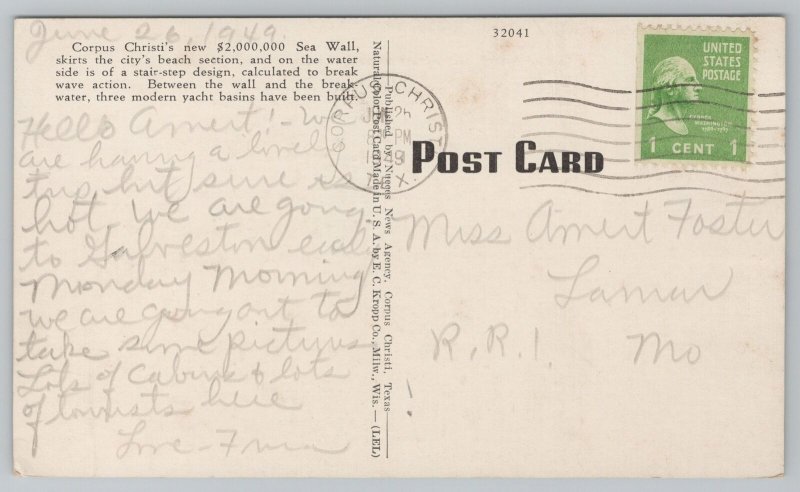 June 26, 1949.
Corpus Christi's new $2,000,000 Sea Wall,
skirts the city's beach section, and on the water
side is of a stair-step design, calculated to break
wave action. Between the wall and the break-
water, three modern yacht basins have been built.
Hello Amert! - We
are having a lovely
trip, but sure is
hot. We are going
to Galveston early
Monday Morning
we are going out to
take some pictures
Lots of cabins & lots
of tourists here
Love -
Published by Nueces News Agency, Corpus Christi, Texas
Natural Color Post Card Made in U. S. A. by E. C. Kropp Co., Milw., Wis. — (LEL)
32041
CORPUS CHRISTI
PM
TEX
POST CARD
UNITED
STATES
POSTAGE
GEORGE
WASHINGTON
1789-1797
1 CENT 1
Miss Amert Foster
Lamar
R.R.1. Mo